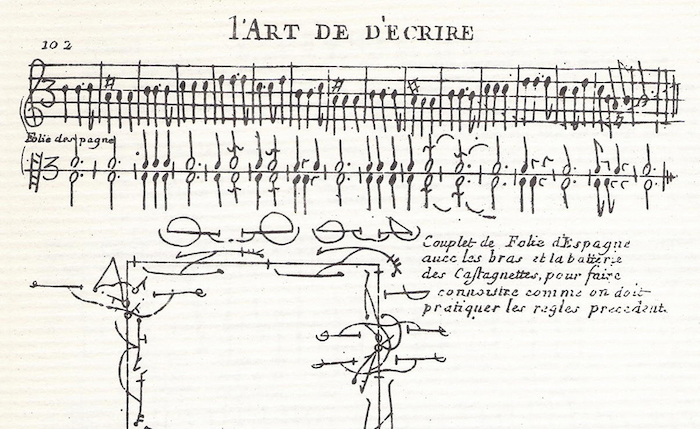 102
l'ART DE D'ECRIRE
Folie des pagne
Couplet de Folie d'Espagne
auec les bras et la batterie
des Castagnettes, pour faire
connoistre comme on doit
pratiquer les regles precedent.